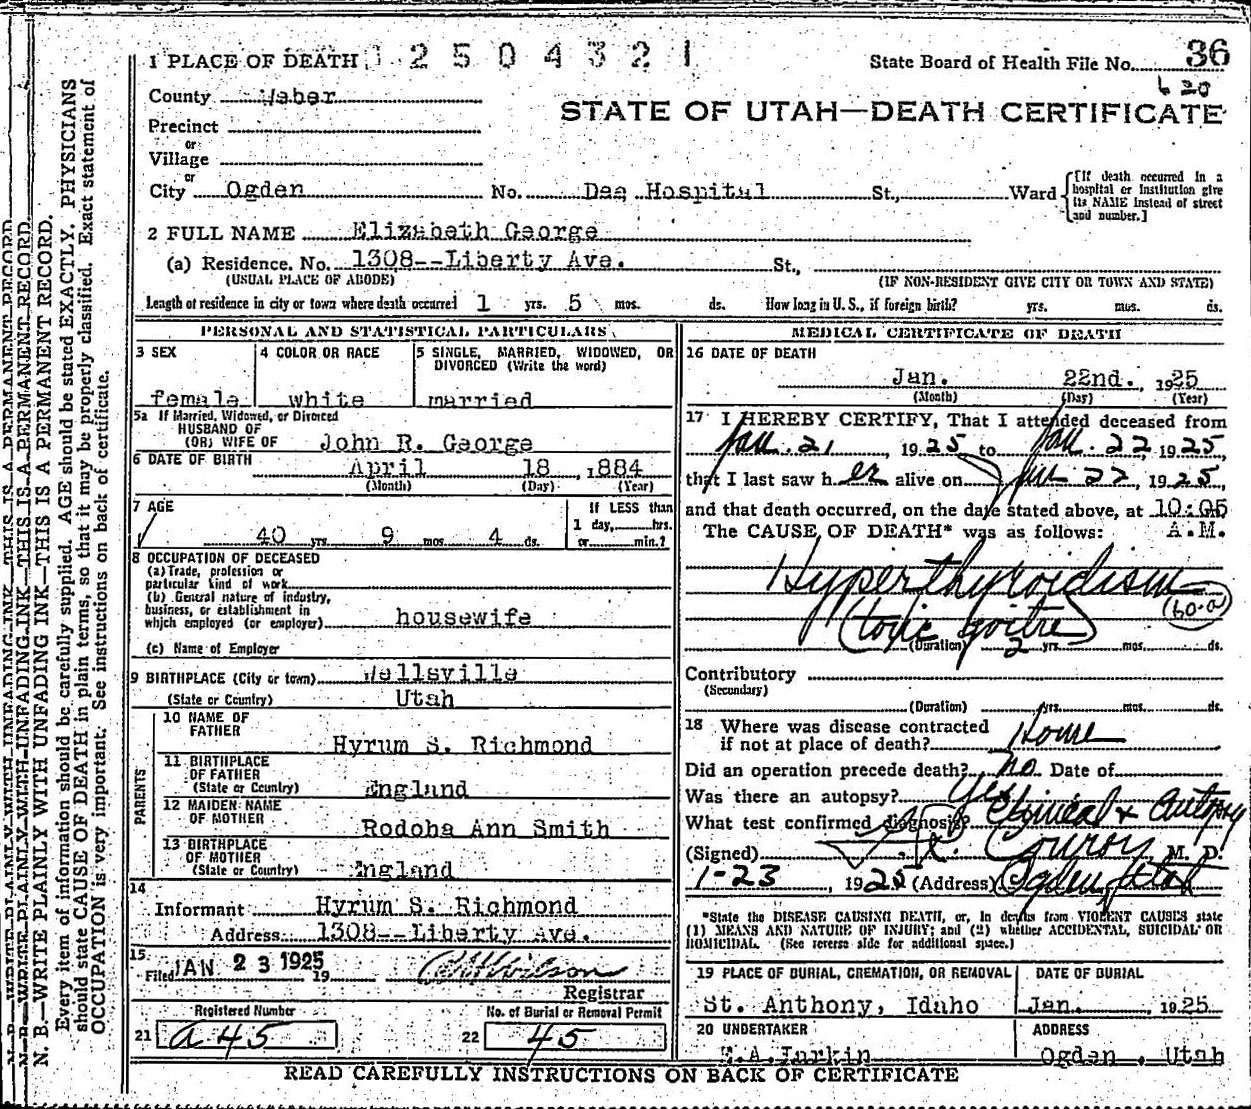 1 PLACE OF DEATH 1 2 5 0 4 3 2 1
State Board of Health File No. 36
620
County Weber
STATE OF UTAH—DEATH CERTIFICATE
Precinct
or
Village
or
City Ogden No. Dee Hospital St., Ward
[If death occurred in a
hospital or institution give
its NAME instead of street
and number.]
2 FULL NAME Elizabeth George
(a) Residence. No. 1308--Liberty Ave. St.,
(USUAL PLACE OF ABODE) (IF NON-RESIDENT GIVE CITY OR TOWN AND STATE)
Length of residence in city or town where death occurred 1 yrs. 5 mos. ds. How long in U.S., if foreign birth? yrs. mos. ds.
PERSONAL AND STATISTICAL PARTICULARS
3 SEX
female
4 COLOR OR RACE
white
5 SINGLE, MARRIED, WIDOWED, OR
DIVORCED (Write the word)
married
5a If Married, Widowed, or Divorced
HUSBAND OF
(OR) WIFE OF John R. George
6 DATE OF BIRTH April 18 , 1884
(Month) (Day) (Year)
7 AGE
40 yrs 9 mos 4 ds.
If LESS than
1 day, hrs.
or min.?
8 OCCUPATION OF DECEASED
(a) Trade, profession or
particular kind of work
(b) General nature of industry,
business, or establishment in
which employed (or employer) housewife
(c) Name of Employer
9 BIRTHPLACE (City or town) Wellsville
(State or Country) Utah
PARENTS
10 NAME OF
FATHER
Hyrum S. Richmond
11 BIRTHPLACE
OF FATHER
(State or Country) England
12 MAIDEN NAME
OF MOTHER
Rodoha Ann Smith
13 BIRTHPLACE
OF MOTHER
(State or Country) England
14
Informant Hyrum S. Richmond
Address 1308--Liberty Ave.
15
Filed JAN 23 1925 19 Wilson
Registrar
Registered Number
21 a 45
No. of Burial or Removal Permit
22 45
MEDICAL CERTIFICATE OF DEATH
16 DATE OF DEATH
Jan. 22nd. 1925
(Month) (Day) (Year)
17 I HEREBY CERTIFY, That I attended deceased from
Jan. 21, 1925 to Jan. 22 1925
that I last saw her alive on Jan 22, 1925,
and that death occurred, on the date stated above, at 10:05
The CAUSE OF DEATH* was as follows: A.M.
Hyperthyroidism
(toxic goitre)
(60-a)
(Duration) 2 yrs. mos. ds.
Contributory
(Secondary)
(Duration) yrs. mos. ds.
18 Where was disease contracted
if not at place of death? Home
Did an operation precede death? no Date of
Was there an autopsy? Yes
What test confirmed diagnosis? Clinical & Autopsy
(Signed) Conroy M. D.
1-23, 1925 (Address) Ogden, Utah
*State the DISEASE CAUSING DEATH, or, in deaths from VIOLENT CAUSES state
(1) MEANS AND NATURE OF INJURY; and (2) whether ACCIDENTAL, SUICIDAL OR
HOMICIDAL. (See reverse side for additional space.)
19 PLACE OF BURIAL, CREMATION, OR REMOVAL
St. Anthony, Idaho
DATE OF BURIAL
Jan. 1925
20 UNDERTAKER
E.A.Larkin
ADDRESS
Ogden , Utah
READ CAREFULLY INSTRUCTIONS ON BACK OF CERTIFICATE
N. B.—WRITE PLAINLY WITH UNFADING INK—THIS IS A PERMANENT RECORD
N. B.—WRITE PLAINLY WITH UNFADING INK—THIS IS A PERMANENT RECORD.
N. B.—WRITE PLAINLY WITH UNFADING INK—THIS IS A PERMANENT RECORD.
Every item of information should be carefully supplied. AGE should be stated EXACTLY. PHYSICIANS
should state CAUSE OF DEATH in plain terms, so that it may be properly classified. Exact statement of
OCCUPATION is very important. See instructions on back of certificate.